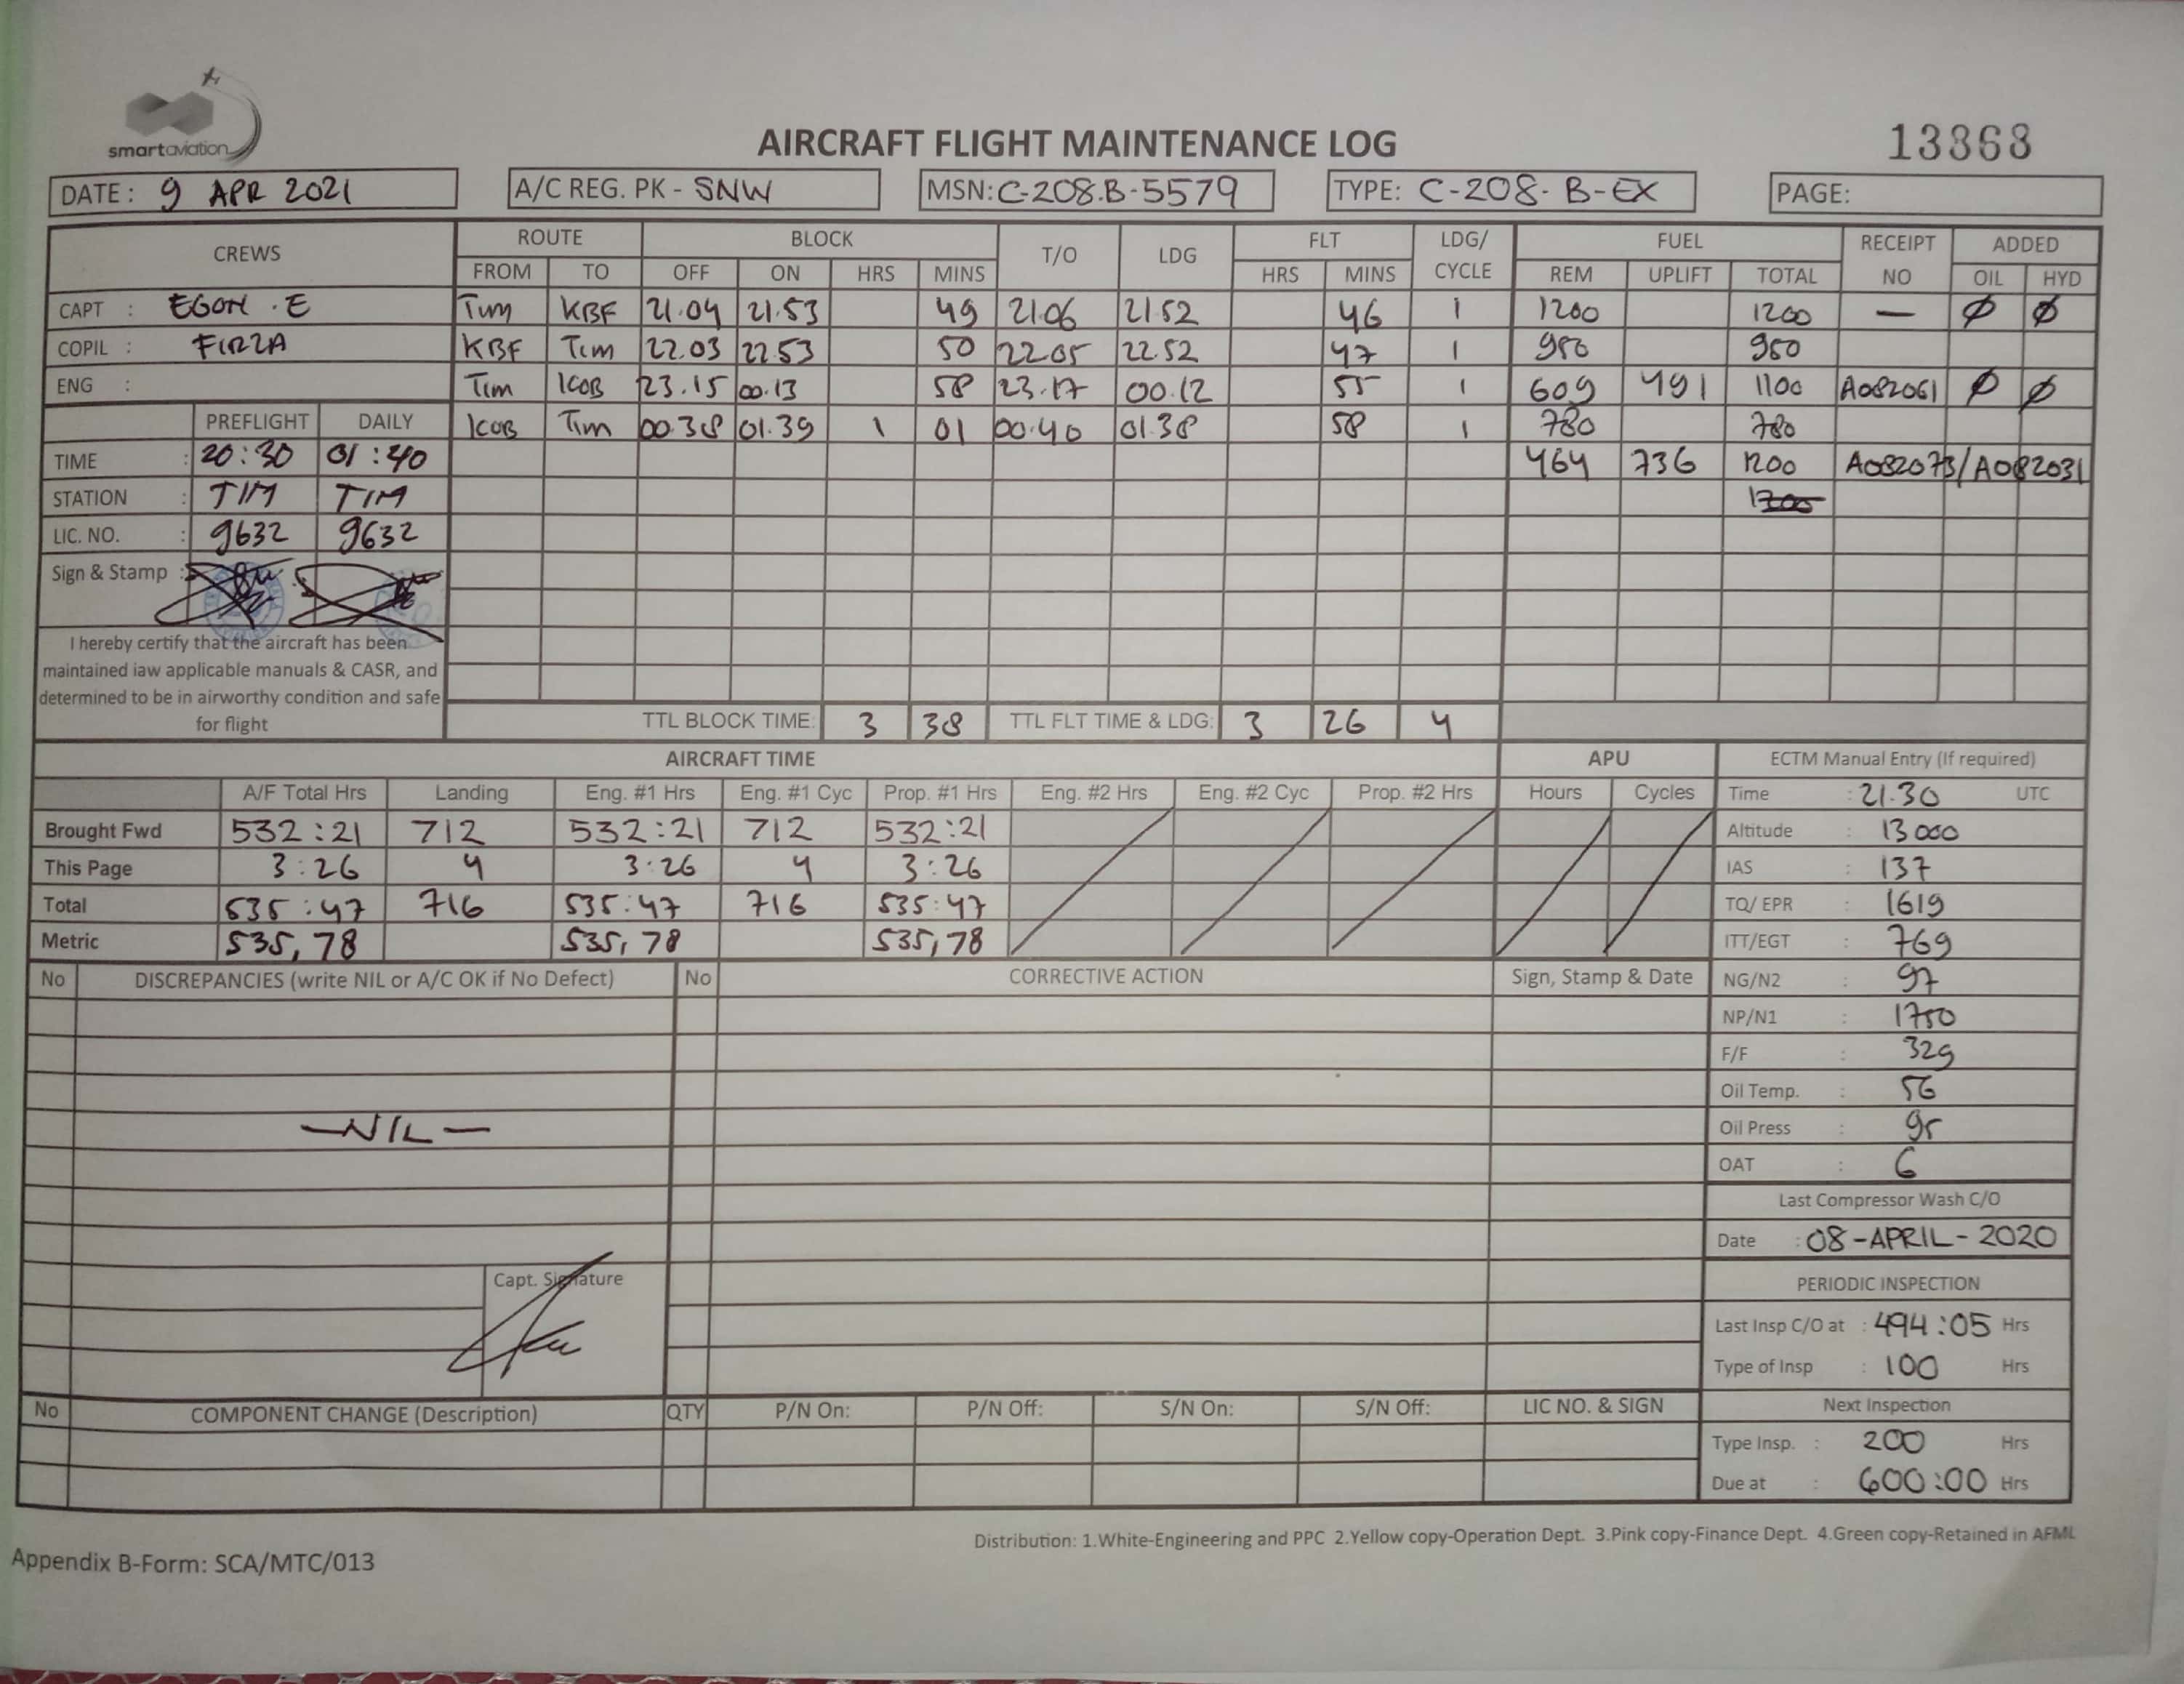 smartaviation
AIRCRAFT FLIGHT MAINTENANCE LOG
13868
DATE: 9 APR 2021 A/C REG. PK - SNW MSN: C-208.B-5579 TYPE: C-208-B-EX PAGE:
CREWS ROUTE BLOCK T/O LDG FLT LDG/CYCLE FUEL RECEIPT NO ADDED
FROM TO OFF ON HRS MINS HRS MINS REM UPLIFT TOTAL OIL HYD
CAPT : EGON .E Tim KBF 21.04 21.53 49 21.06 21.52 46 1 1200 1200 — Ø Ø
COPIL : FIRZA KBF Tim 22.03 22.53 50 22.05 22.52 47 1 950 950
ENG : Tim KOB 23.15 00.13 58 23.17 00.12 55 1 609 491 1100 A082061 Ø Ø
PREFLIGHT DAILY KOB Tim 00.38 01.39 1 01 00.40 01.38 58 1 780 780
TIME : 20:30 01:40 464 736 1200 A082073/A082031
STATION : TIM TIM
LIC. NO. : 9632 9632
Sign & Stamp :
I hereby certify that the aircraft has been
maintained iaw applicable manuals & CASR, and
determined to be in airworthy condition and safe
for flight
TTL BLOCK TIME: 3 38 TTL FLT TIME & LDG: 3 26 4
AIRCRAFT TIME APU ECTM Manual Entry (If required)
A/F Total Hrs Landing Eng. #1 Hrs Eng. #1 Cyc Prop. #1 Hrs Eng. #2 Hrs Eng. #2 Cyc Prop. #2 Hrs Hours Cycles Time : 21.30 UTC
Brought Fwd 532:21 712 532:21 712 532:21 Altitude : 13000
This Page 3:26 4 3:26 4 3:26 IAS : 137
Total 535:47 716 535:47 716 535:47 TQ/ EPR : 1619
Metric 535,78 535,78 535,78 ITT/EGT : 769
No DISCREPANCIES (write NIL or A/C OK if No Defect) No CORRECTIVE ACTION Sign, Stamp & Date NG/N2 : 97
NP/N1 : 1750
F/F : 329
Oil Temp. : 56
—NIL—
Oil Press : 95
OAT : 6
Last Compressor Wash C/O
Date : 08-APRIL-2020
Capt. Signature
PERIODIC INSPECTION
Last Insp C/O at : 494:05 Hrs
Type of Insp : 100 Hrs
No COMPONENT CHANGE (Description) QTY P/N On: P/N Off: S/N On: S/N Off: LIC NO. & SIGN Next Inspection
Type Insp. : 200 Hrs
Due at : 600:00 Hrs
Distribution: 1.White-Engineering and PPC 2.Yellow copy-Operation Dept. 3.Pink copy-Finance Dept. 4.Green copy-Retained in AFML
Appendix B-Form: SCA/MTC/013